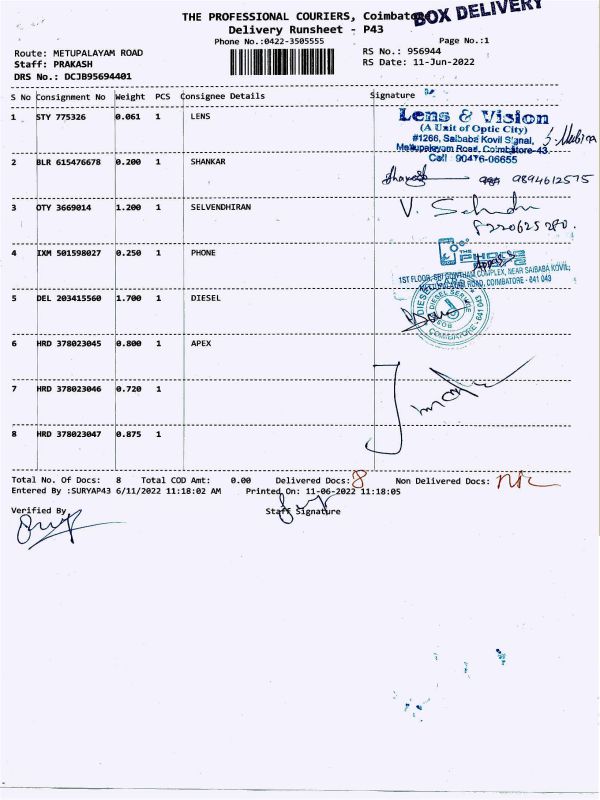 THE PROFESSIONAL COURIERS, Coimbatore
BOX DELIVERY
Delivery Runsheet - P43
Phone No.:0422-3505555
Page No.:1
Route: METUPALAYAM ROAD
RS No.: 956944
Staff: PRAKASH
RS Date: 11-Jun-2022
DRS No.: DCJB95694401
S No Consignment No Weight PCS Consignee Details Signature
1 STY 775326 0.061 1 LENS
Lens & Vision
(A Unit of Optic City)
#1266, Saibaba Kovil Signal,
Mettupalayam Road, Coimbatore-43.
Cell : 90476-06655
2 BLR 615476678 0.200 1 SHANKAR
9894612575
3 OTY 3669014 1.200 1 SELVENDHIRAN
V.
8220625280.
4 IXM 501598027 0.250 1 PHONE
THE
PHONE
1ST FLOOR, SRI GOWTHAM COMPLEX, NEAR SAIBABA KOVIL,
METTUPALAYAM ROAD, COIMBATORE - 641 043
5 DEL 203415560 1.700 1 DIESEL
DIESEL SERVICE
COIMBATORE - 641 043
6 HRD 378023045 0.800 1 APEX
7 HRD 378023046 0.720 1
8 HRD 378023047 0.875 1
Total No. Of Docs: 8 Total COD Amt: 0.00 Delivered Docs: 8 Non Delivered Docs: NIL
Entered By :SURYAP43 6/11/2022 11:18:02 AM Printed On: 11-06-2022 11:18:05
Verified By
Staff Signature